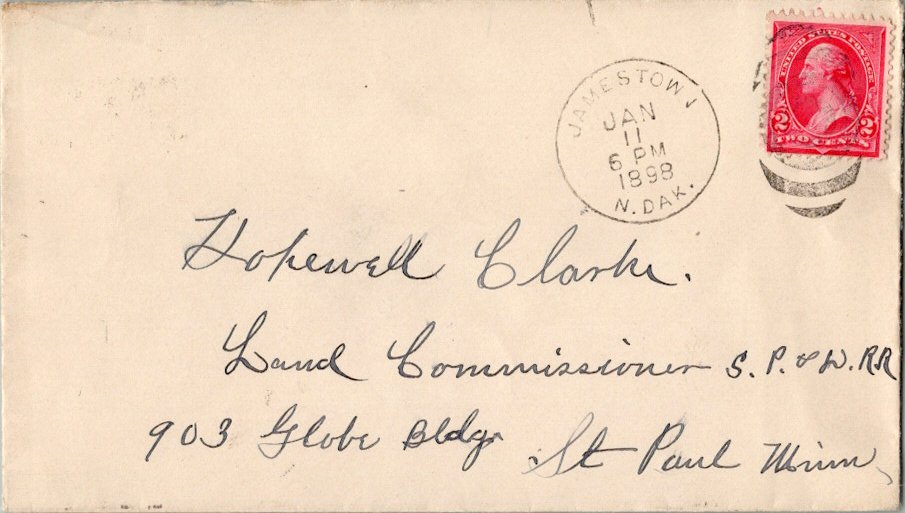 JAMESTOWN
JAN
11
6 PM
1898
N. DAK.
UNITED STATES POSTAGE
2 2
TWO CENTS
Hopewell Clarke.
Land Commissioner S. P. & D. RR
903 Globe Bldg
St Paul Minn